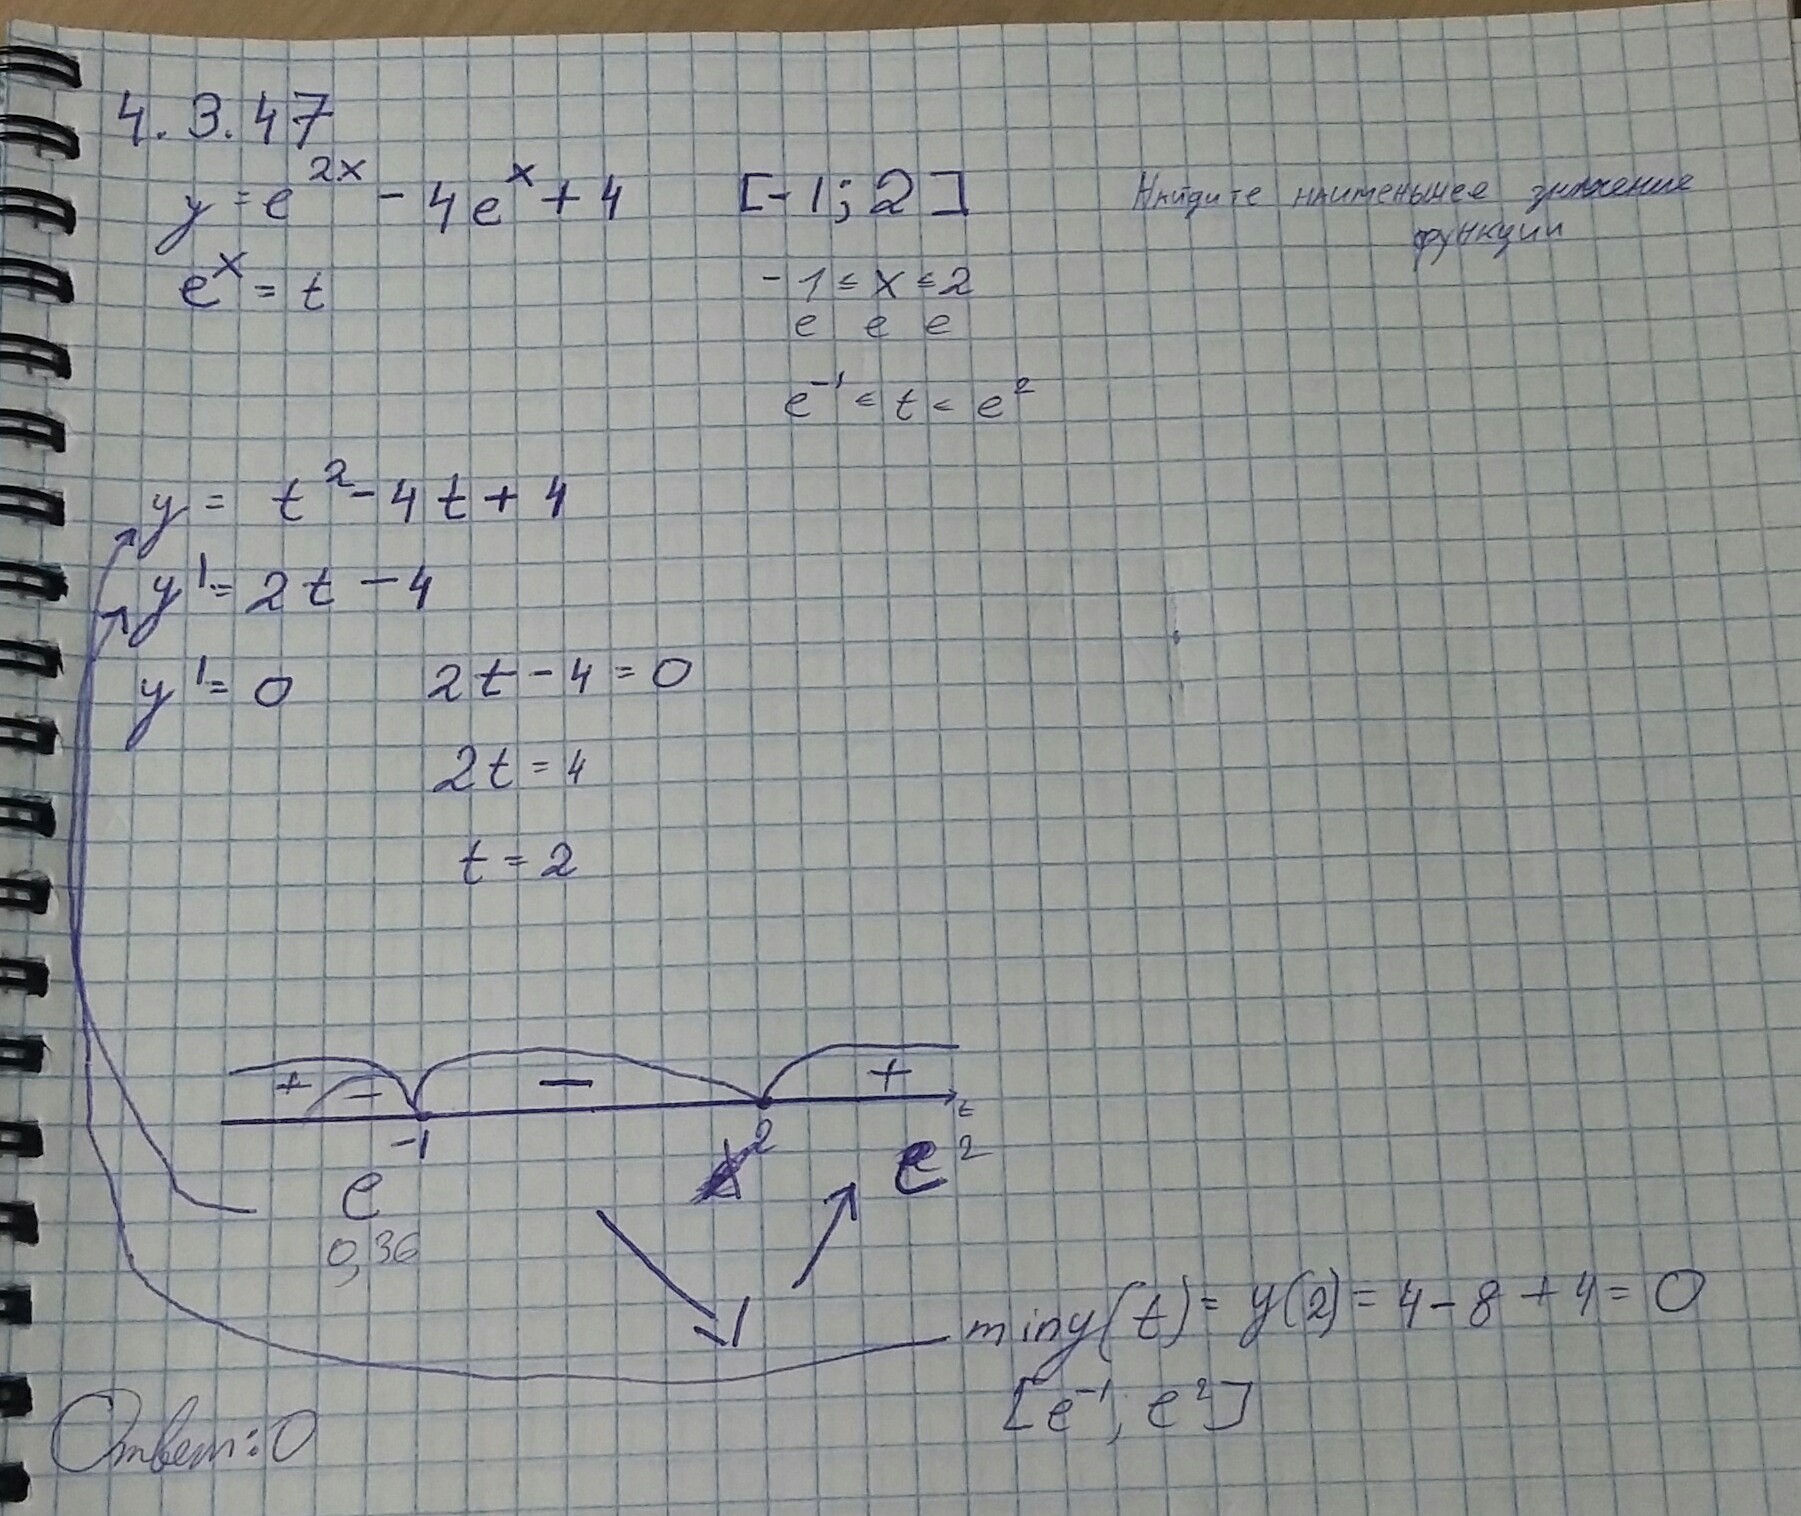 4.3.47
y = e^{2x} - 4e^x + 4 [-1; 2] Найдите наименьшее значение
функции
e^x = t -1 ≤ x ≤ 2
e e e
e^{-1} ≤ t ≤ e^2
y = t^2 - 4t + 4
y' = 2t - 4
y' = 0 2t - 4 = 0
2t = 4
t = 2
+ - - + t
e^{-1} 2 e^2
0,36
min y(t) = y(2) = 4 - 8 + 4 = 0
[e^{-1}; e^2]
Ответ: 0